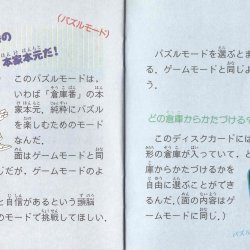 （パズルモード）
の
本家本元だ！
このパズルモードは、
いわば「倉庫番」の本
家本元、純粋にパズル
を楽しむためのモード
なんだ。
面はゲームモードと同
じだが、
と自信があるという頭脳
のモードで挑戦してほしい。
パズルモードを選ぶとま
る、ゲームモードと同じよ
う
どの倉庫からかたづける
このディスクカードには
形の倉庫が入っていて、ど
からかたづけるかを
自由に選ぶことができ
るんだ。（面の内容はゲ
ームモードに同じ。）
パズル